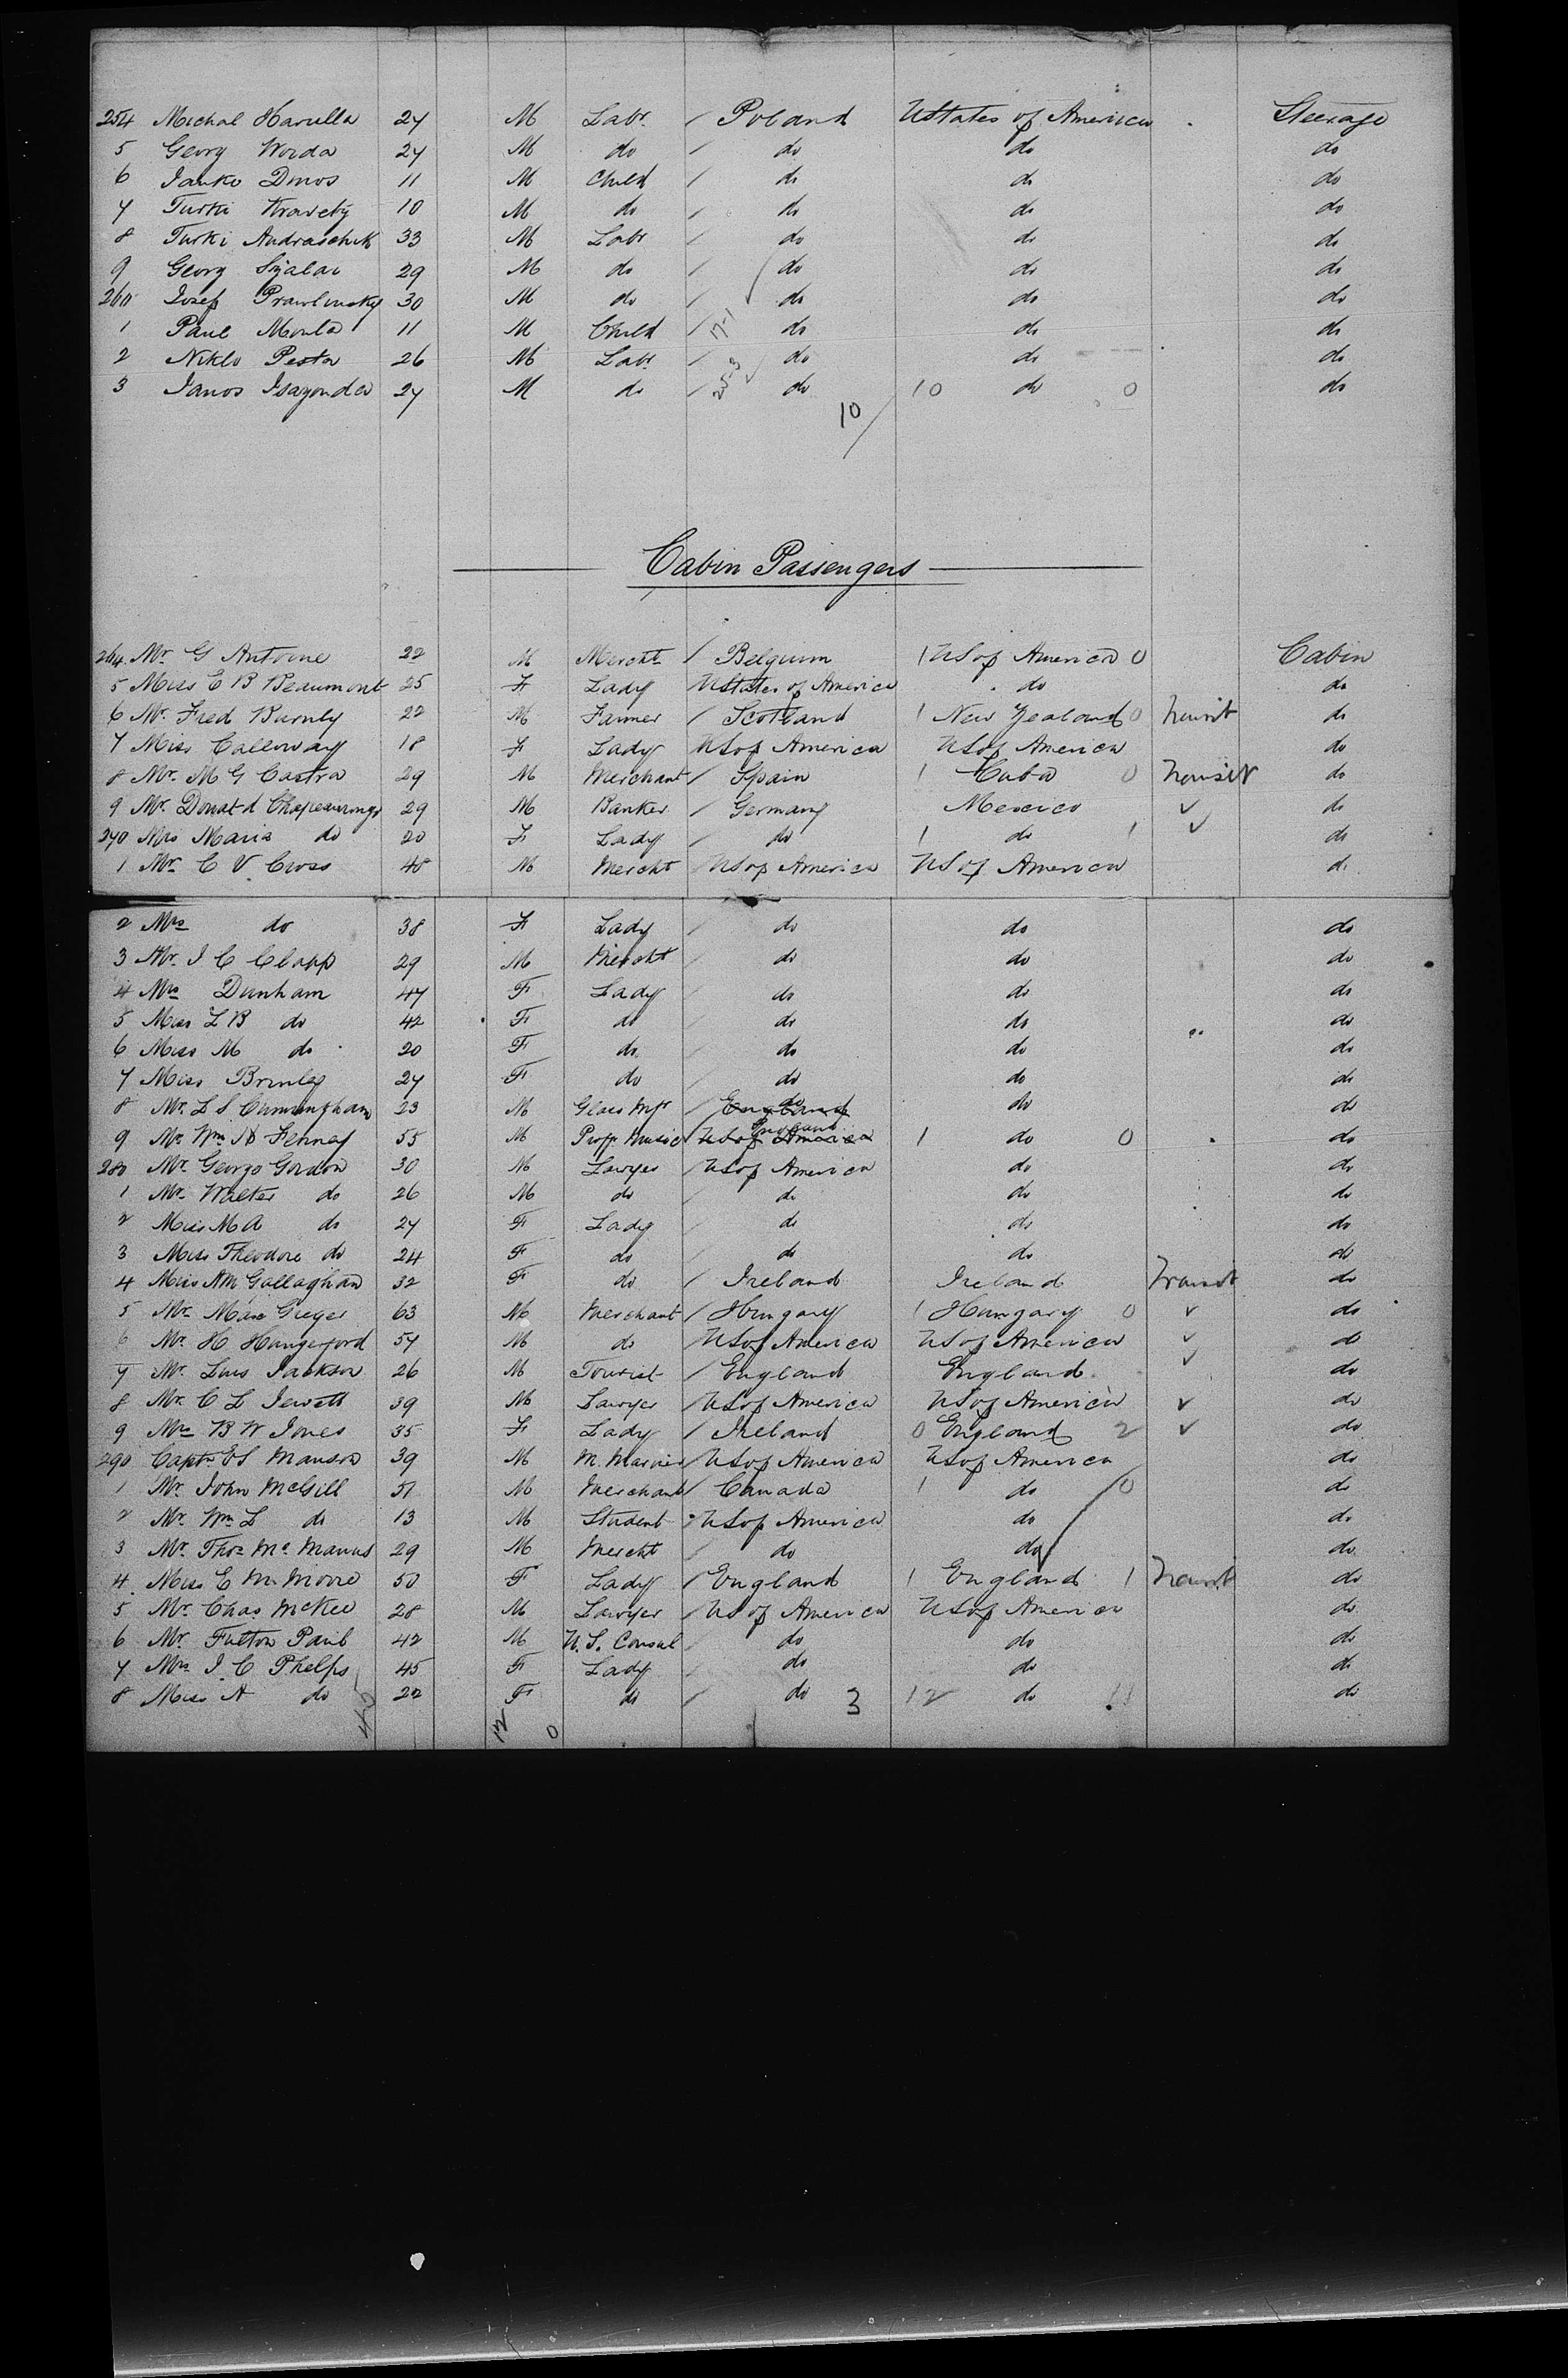 254 Michal Harulla 27 M Labr / Poland UStates of America Steerage
5 Georg Worda 27 M do / do do do
6 Janko Dinos 11 M Child / do do do
7 Turki 10 M do / do do do
8 Turki Andraschik 33 M Labr / do do do
9 Georg 29 M do / do do do
260 Josef Prawlinsky 30 M do / do do do
1 Paul Monta 11 M Child / do do do
2 Niklo Pesta 26 M Labr / do do do
3 Janos Isagonda 27 M do / do 10 do 0 do
10/
Cabin Passengers
264 Mr. G Antoine 22 M Mercht / Belgium 1 US of America 0 Cabin
5 Miss E B Beaumont 25 F Lady UStates of America do do
6 Mr. Fred Burnly 22 M Farmer / Scotland 1 New Zealand 0 Transit do
7 Miss Calloway 18 F Lady US of America US of America do
8 Mr. M G Castra 29 M Merchant / Spain 1 Cuba 0 Transit do
9 Mr. Donat d Chapeaurouge 29 M Banker / Germany Mexico ✓ do
270 Mrs Maria do 20 F Lady / do 1 do 1 ✓ do
1 Mr. C V Cross 48 M Mercht / US of America US of America do
2 Mrs do 38 F Lady / do do do
3 Mr. J C Clapp 29 M Mercht / do do do
4 Mrs Dunham 47 F Lady / do do do
5 Miss L B do 42 F do / do do do
6 Miss M do 20 F do / do do do
7 Miss Brinley 27 F do / do do do
8 Mr. L S Cunningham 23 M Glass Mfr / England do do do
9 Mr. Wm N Fenney 55 M Prof. Music US of America England 1 do 0 do
280 Mr. George Gordon 30 M Lawyer / US of America do do
1 Mr. Walter do 26 M do / do do do
2 Miss M A do 27 F Lady / do do do
3 Miss Theodore do 24 F do / do do do
4 Miss AM Gallaghan 32 F do / Ireland Ireland Transit do
5 Mr. Max Gieger 63 M Merchant / Hungary 1 Hungary 0 ✓ do
6 Mr. H Hungerford 54 M do / US of America US of America ✓ do
7 Mr. Luis Jackson 26 M Tourist / England England ✓ do
8 Mr. C L Jewett 39 M Lawyer / US of America US of America ✓ do
9 Mrs B W Jones 35 F Lady / Ireland 0 England 2 ✓ do
290 Captn ES Manson 39 M M. Marier / US of America US of America do
1 Mr. John McGill 51 M Merchant / Canada 1 do 0 do
2 Mr. Wm L do 13 M Student / US of America do do
3 Mr. Thos Mc Manus 29 M Mercht / do do do
4 Miss E M Moore 50 F Lady / England 1 England 1 Transit do
5 Mr. Chas McKee 28 M Lawyer / US of America US of America do
6 Mr. Fulton Paul 42 M U.S. Consul / do do do
7 Mrs J C Phelps 45 F Lady / do do do
8 Miss A do 22 F do / do 3 12 do 11 do
12 0